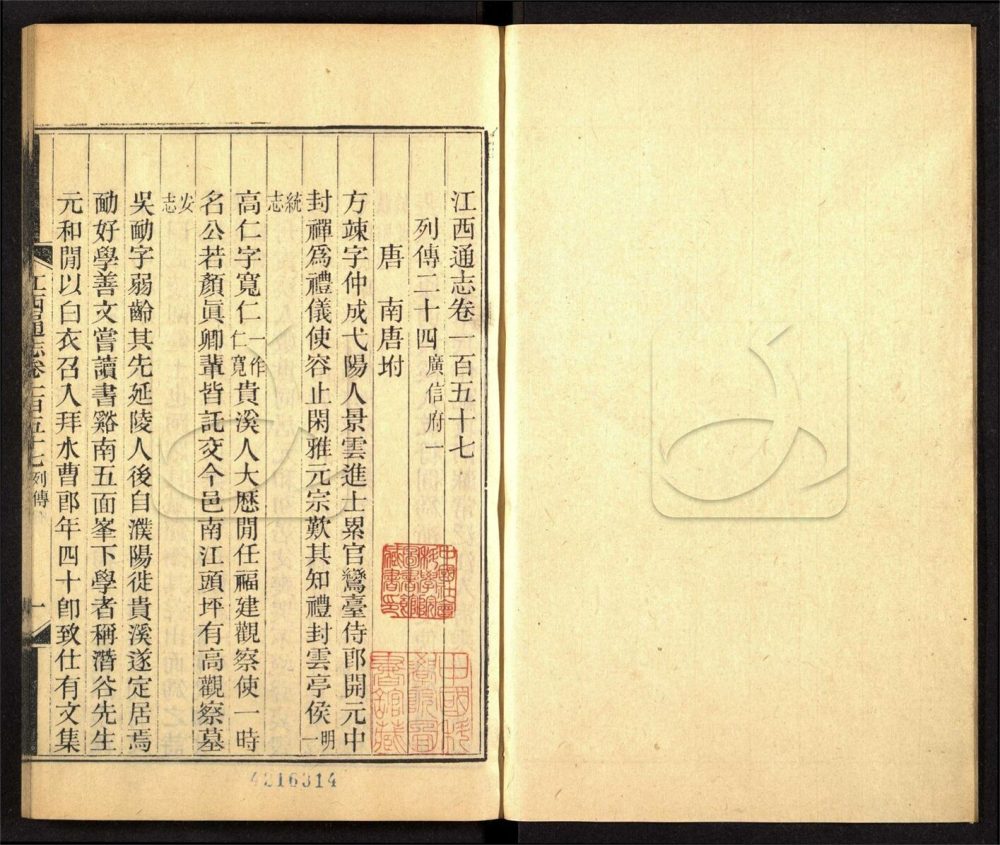 江西通志卷一百五十七
列傳二十四廣信府一
唐　南唐坿
方竦字仲成弋陽人景雲進士累官鸞臺侍郎開元中
封禪爲禮儀使容止閑雅元宗歎其知禮封雲亭侯明一
統志
高仁字寬仁一作仁寬貴溪人大歷閒任福建觀察使一時
名公若顏眞卿輩皆託交今邑南江頭坪有高觀察墓
安志
吳𠡠字弱齡其先延陵人後自濮陽徙貴溪遂定居焉
𠡠好學善文嘗讀書谿南五面峯下學者稱潛谷先生
元和閒以白衣召入拜水曹郎年四十卽致仕有文集
江西通志卷一百五十七列傳
一
中國社會科學院圖書館藏書印
4216314